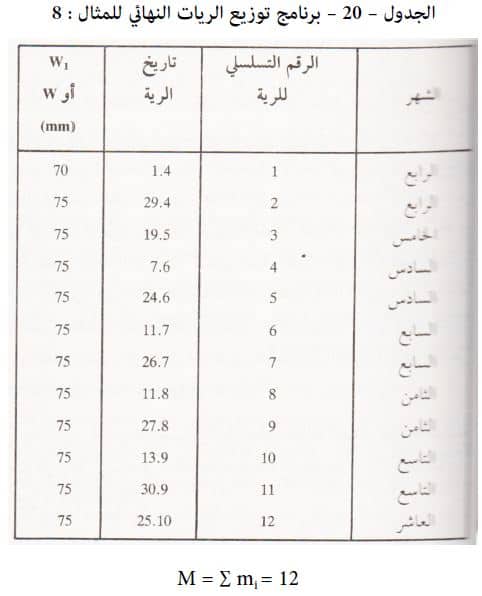 الجدول – 20 – برنامج توزيع الريات النهائي للمثال : 8
الشهر الرقم التسلسلي للرية تاريخ الرية W₁ أو W (mm)
الرابع 1 1.4 70
الرابع 2 29.4 75
الخامس 3 19.5 75
السادس 4 7.6 75
السادس 5 24.6 75
السابع 6 11.7 75
السابع 7 26.7 75
الثامن 8 11.8 75
الثامن 9 27.8 75
التاسع 10 13.9 75
التاسع 11 30.9 75
العاشر 12 25.10 75
M = ∑ mᵢ = 12